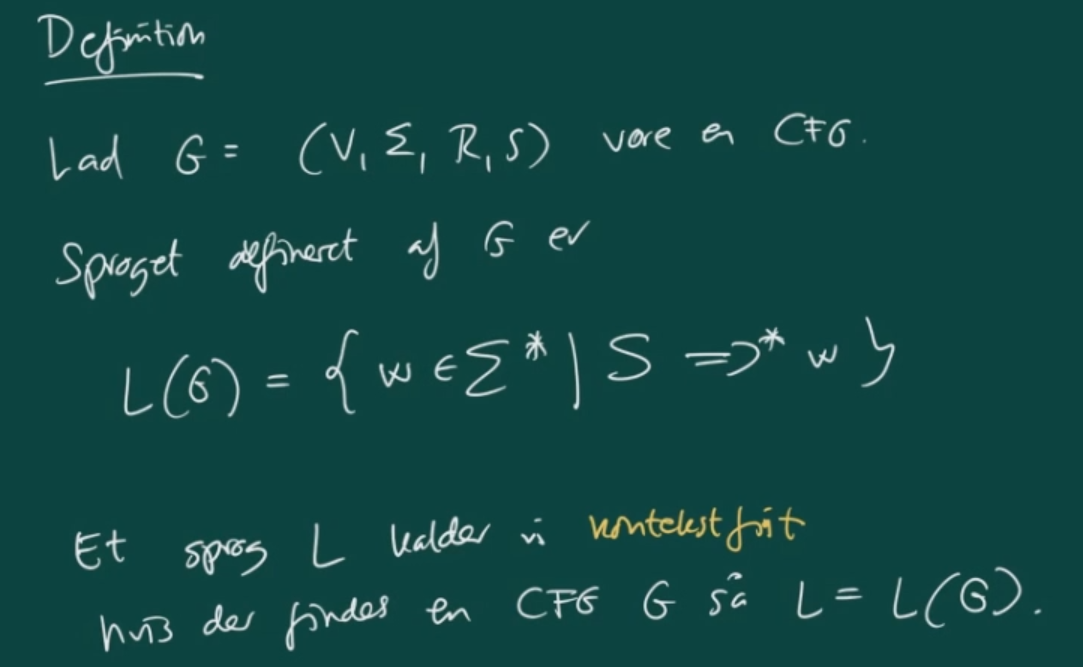 Definition
Lad G = (V, Σ, R, S) være en CFG.
Sproget defineret af G er
L(G) = { w ∈ Σ* | S ⇒* w }
Et sprog L kalder vi kontekstfrit
hvis der findes en CFG G så L = L(G).